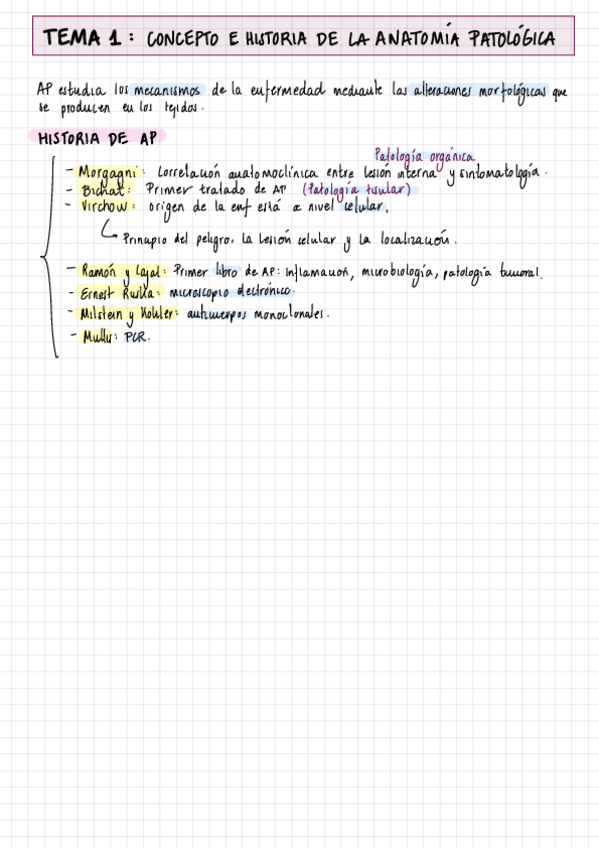 TEMA 1: CONCEPTO E HISTORIA DE LA ANATOMÍA PATOLÓGICA
AP estudia los mecanismos de la enfermedad mediante las alteraciones morfológicas que
se producen en los tejidos.
HISTORIA DE AP
Patología orgánica
- Morgagni: Correlación anatomoclínica entre lesión interna y sintomatología.
- Bichat: Primer tratado de AP (Patología tisular)
- Virchow: origen de la enf está a nivel celular.
Principio del peligro, la lesión celular y la localización.
- Ramón y Cajal: Primer libro de AP: Inflamación, microbiología, patología tumoral.
- Ernest Ruska: microscopio electrónico.
- Milstein y Kohler: anticuerpos monoclonales.
- Mullis: PCR.